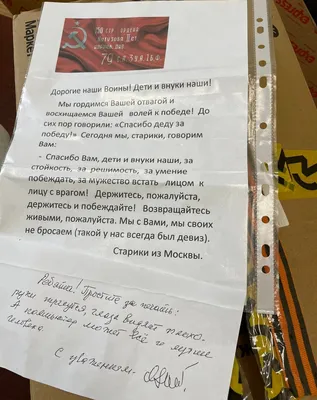 150 СТР. ОРДЕНА
КУТУЗОВА II СТ.
ИДРИЦК. ДИВ.
79 С.К. 3 У.А. 1 Б.Ф.
Дорогие наши Воины! Дети и внуки наши!
Мы гордимся Вашей отвагой и
восхищаемся Вашей волей к победе! До
сих пор говорили: «Спасибо деду за
победу!» Сегодня мы, старики, говорим
Вам:
- Спасибо Вам, дети и внуки наши, за
стойкость, за решимость, за умение
побеждать, за мужество встать лицом к
лицу с врагом! Держитесь, пожалуйста,
держитесь и побеждайте! Возвращайтесь
живыми, пожалуйста. Мы с Вами, мы своих
не бросаем (такой у нас всегда был девиз).
Старики из Москвы.
Ребята! Простите за печать:
руки трясутся, глаза видят плохо.
А компьютер может всё и лучше
человека
С уважением -
Маркет